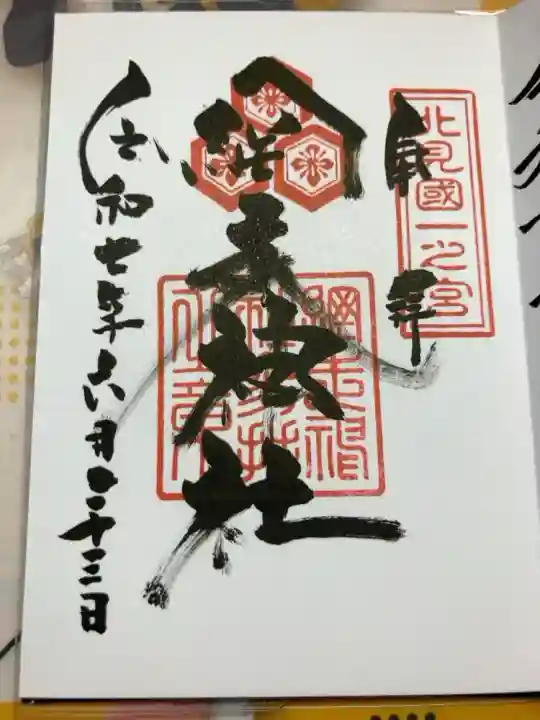 奉拝
北見國一之宮
網走神社
令和七年六月二十三日